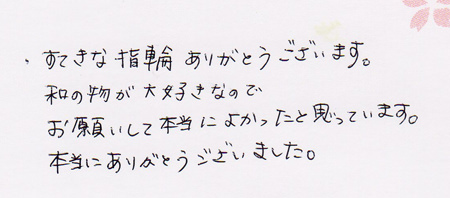 ・すてきな指輪ありがとうございます。
和の物が大好きなので
お願いして本当によかったと思っています。
本当にありがとうございました。